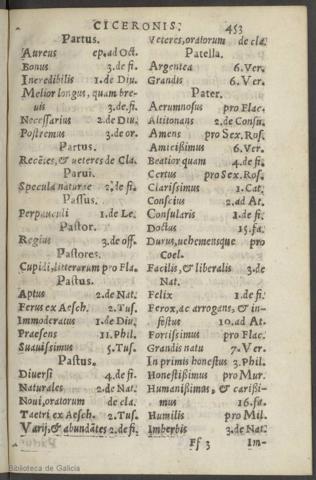 CICERONIS. 453
Partus.
Aureus ep. ad Oct.
Bonus 3. de fi.
Incredibilis 1. de Diu.
Melior longus, quam bre-
uis 3. de fi.
Necessarius 2. de Diu.
Postremus 3. de or.
Partus.
Recẽtes, & ueteres de Cla.
Parui.
Specula naturae 2. de fi.
Passus.
Perpauculi 1. de Le.
Pastor.
Regius 3. de off.
Pastores.
Cupidi, litterarum pro Fla.
Pastus.
Aptus 2. de Nat.
Ferus ex Aesch. 2. Tus.
Immoderatus 1. de Diu.
Praesens 11. Phil.
Suauissimus 5. Tus.
Pastus.
Diuersi 4. de fi.
Naturales 2. de Nat.
Noui, oratorum de cla.
Taetri ex Aesch. 2. Tus.
Varij, & abundãtes 2. de fi.
Veteres, oratorum de cla.
Patella.
Argentea 6. Ver.
Grandis 6. Ver.
Pater.
Aerumnosus pro Flac.
Altitonans 2. de Consu.
Amens pro Sex. Ros.
Amicissimus 6. Ver.
Beatior quam 4. de fi.
Certus pro Sex. Ros.
Clarissimus 1. Cat.
Conscius 2. ad At.
Consularis 1. de fi.
Doctus 15. fa.
Durus, uehemensque pro
Coel.
Facilis, & liberalis 3. de
Nat.
Felix 1. de fi.
Ferox, ac arrogans, & in-
festus 10. ad At.
Fortissimus pro Flac.
Grandis natu 7. Ver.
In primis honestus 3. Phil.
Honestissimus pro Mur.
Humanissimus, & carissi-
mus 16. fa.
Humilis pro Mil.
Imberbis 3. de Nat.
Ff 3 Im-
Biblioteca de Galicia